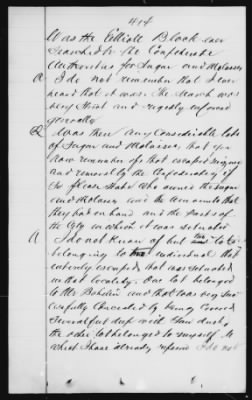 414
Was the Elliott Block ever
searched by the Confederate
Authorities for Sugar and Molasses
A I do not remember that I ever
heard that it was. The search was
very strict and rigidly enforced
generally
Q Was there any Considerable lots
of Sugar and Molasses, that you
now remember of that escaped seizure
and removal by the Confederates, if
so please state who owned the sugar
and Molasses and the amounts that
they had on hand and the parts of
the City in which it was situated
A I do not Know of but two lots
belonging to individuals that
entirely escaped, that was situated
in that locality. One lot belonged
to Mr and that was very
carefully Concealed by being Covered
several feet deep with Saw dust,
the other lot belonged to myself, to
which I have already referred I do not